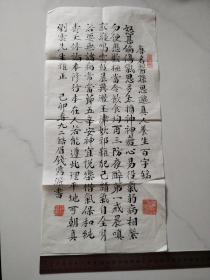 孫思邈真人養生百字銘
怒甚偏傷氣思多太損神神疲心易役氣弱病相縈
勿使悲歡極當令飲食均再三防夜醉第一戒晨嗔
亥寢鳴雲鼓寅興漱玉津妖邪難犯己精氣自全身
若要無諸病常當節五辛安神宜悅樂惜氣保和純
壽夭休論命修行本在人若能遵此理平地可朝真
先生雅正 己卯 九二 錢 書